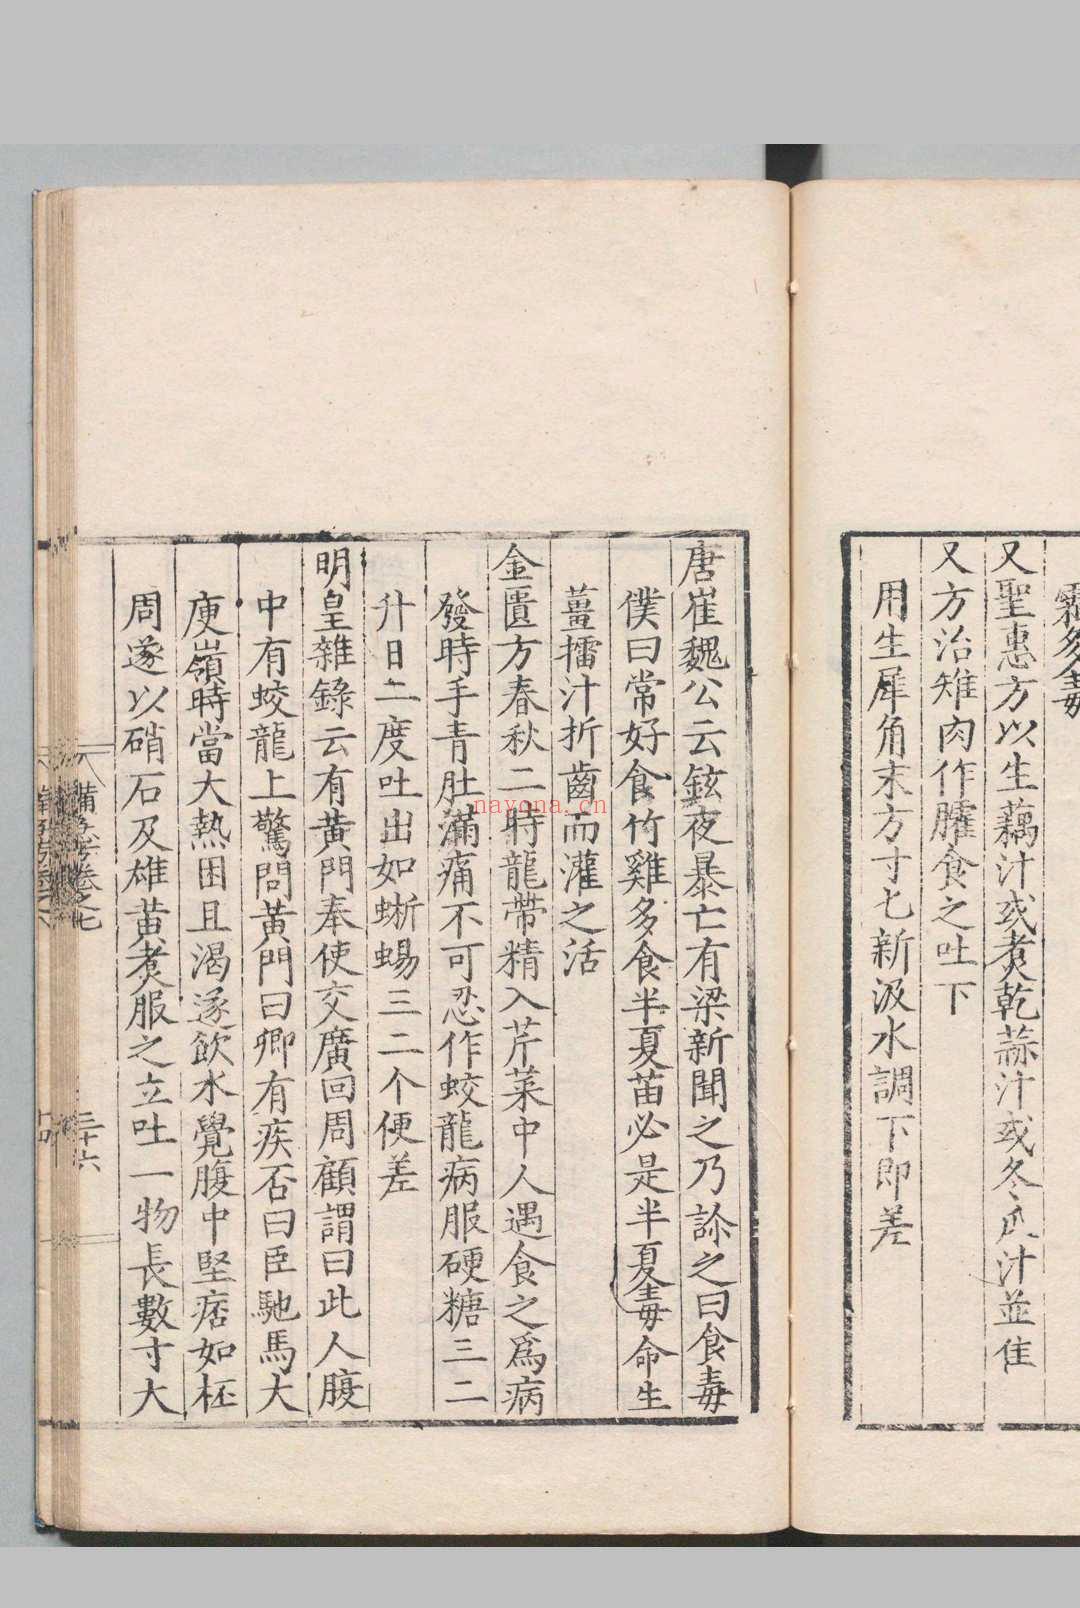 霜多毒
又聖惠方以生藕汁或煮乾蒜汁或冬瓜汁並佳
又方治雉肉作臛食之吐下
用生犀角末方寸七新汲水調下即差
唐崔魏公云鉉夜暴亡有梁新聞之乃診之曰食毒
僕曰常好食竹雞多食半夏苗必是半夏毒命生
薑擂汁折齒而灌之活
金匱方春秋二時龍帶精入芹菜中人遇食之爲病
發時手青肚滿痛不可忍作蛟龍病服硬糖三二
升日二度吐出如蜥蜴三二个便差
明皇雜錄云有黄門奉使交廣回周顧謂曰此人腹
中有蛟龍上驚問黄門曰卿有疾否曰臣馳馬大
庾嶺時當大熱困且渴遂飲水覺腹中堅痞如杯
周遂以硝石及雄黄煮服之立吐一物長數寸大
備急方卷之七
三十六
nayona.cn